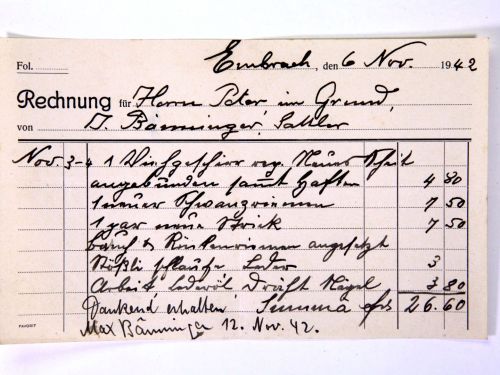 Fol. Embrach, den 6 Nov. 1942
Rechnung für Herrn Peter im Grund,
von J. Bänninger, Sattler
Nov 3-4 1 Viehgeschirr rep. Neues Scheit
angebunden samt Haften 4 80
1 neuer Schwanzriemen 7 50
1 par neue Strick 7 50
Bauch & Rückenriemen angesetzt
Stößli Leder 3
Arbeit, Lederöl Draht Nägel 3 80
Dankend erhalten, Summa frs 26.60
Max Bänninger 12. Nov. 42.
FAVORIT